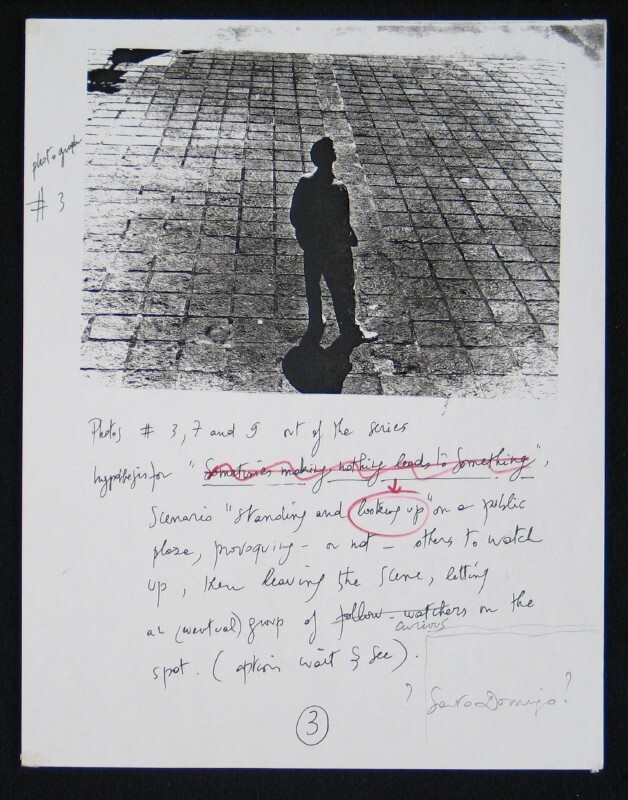 photograph
# 3
Photos # 3, 7 and 9 out of the series
hypothesis for "Sometimes making nothing leads to Something",
Scenario "Standing and looking up" on a public
plaza, provoquing - or not - others to watch
up, then leaving the scene, letting
an (eventual) group of follow-watchers on the
curious
spot. (option wait & see).
? Santo Domingo?
3